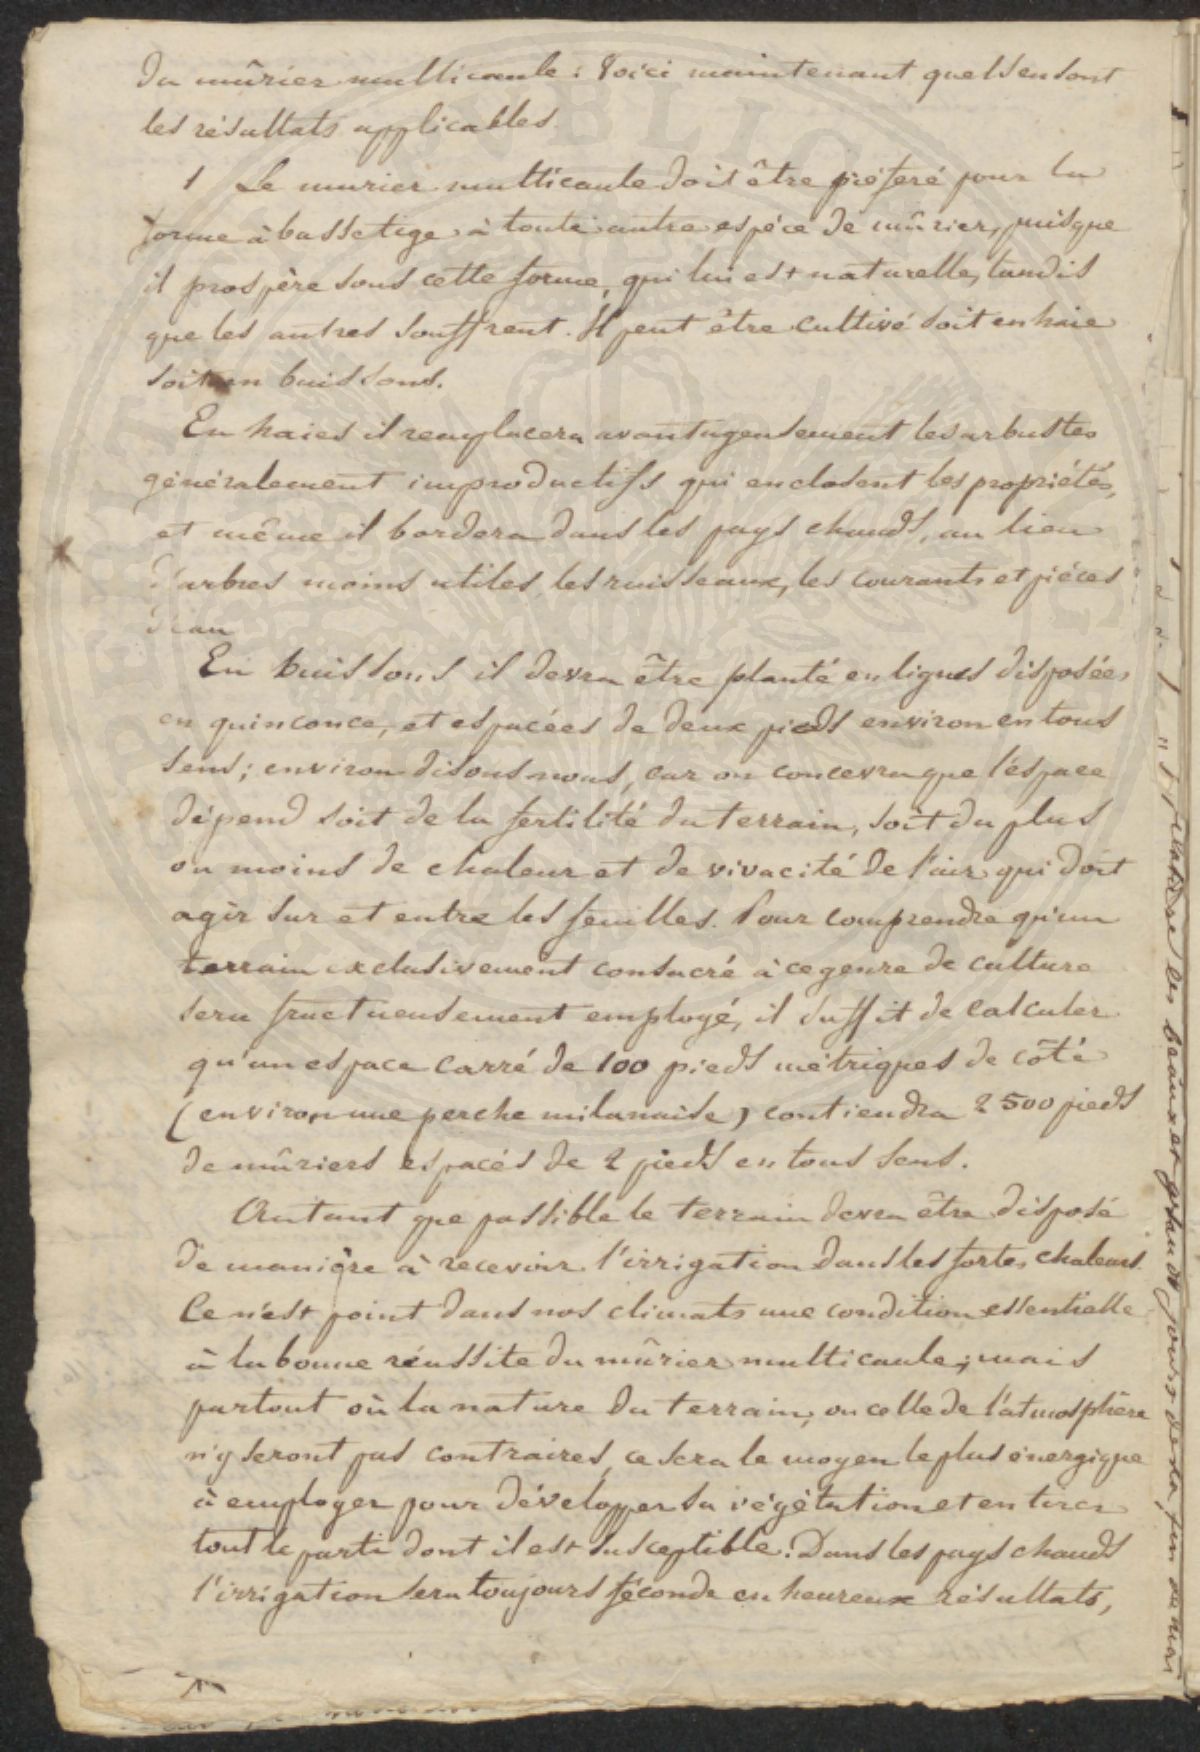 du mûrier multicaule : Voici maintenant quels en sont
les résultats applicables
1 Le murier multicaule doit être préferé pour la
forme à basse tige à toute autre espéce de mûrier, puisque
il prospère sous cette forme, qui lui est naturelle, tandis
que les autres souffrent. Il peut être cultivé soit en haie
soit en buissons.
En haies il remplacera avantageusement les arbustes
généralement improductifs qui enclosent les propriétés,
et même il bordera dans les pays chauds, au lieu
d'arbres moins utiles, les ruisseaux, les courants et piéces
d'eau
En buissons il devra être planté en lignes disposées
en quinconce, et espacées de deux pieds environ en tous
sens ; environ disons nous, car on concevra que l'éspace
dépend soit de la fertilité du terrain, soit du plus
ou moins de chaleur et de vivacité de l'air qui doit
agir sur et entre les feuilles. Pour comprendre qu'un
terrain exclusivement consacré à ce genre de culture
sera fructueusement employé, il suffit de calculer
qu'un espace carré de 100 pieds métriques de côté
(environ une perche milanaise) contiendra 2500 pieds
de mûriers espacés de 2 pieds en tous sens.
Autant que possible le terrain devra être disposé
de manière à recevoir l'irrigation dans les fortes chaleurs.
Ce n'est point dans nos climats une condition essentielle
à la bonne réussite du mûrier multicaule ; mais
partout où la nature du terrain, ou celle de l'atmosphère
n'y seront pas contraires, ce sera le moyen le plus énergique
à employer pour développer sa végétation et en tirer
tout le parti dont il est susceptible. Dans les pays chauds
l'irrigation sera toujours féconde en heureux résultats,
les beaux et grands jours de la fin de mai